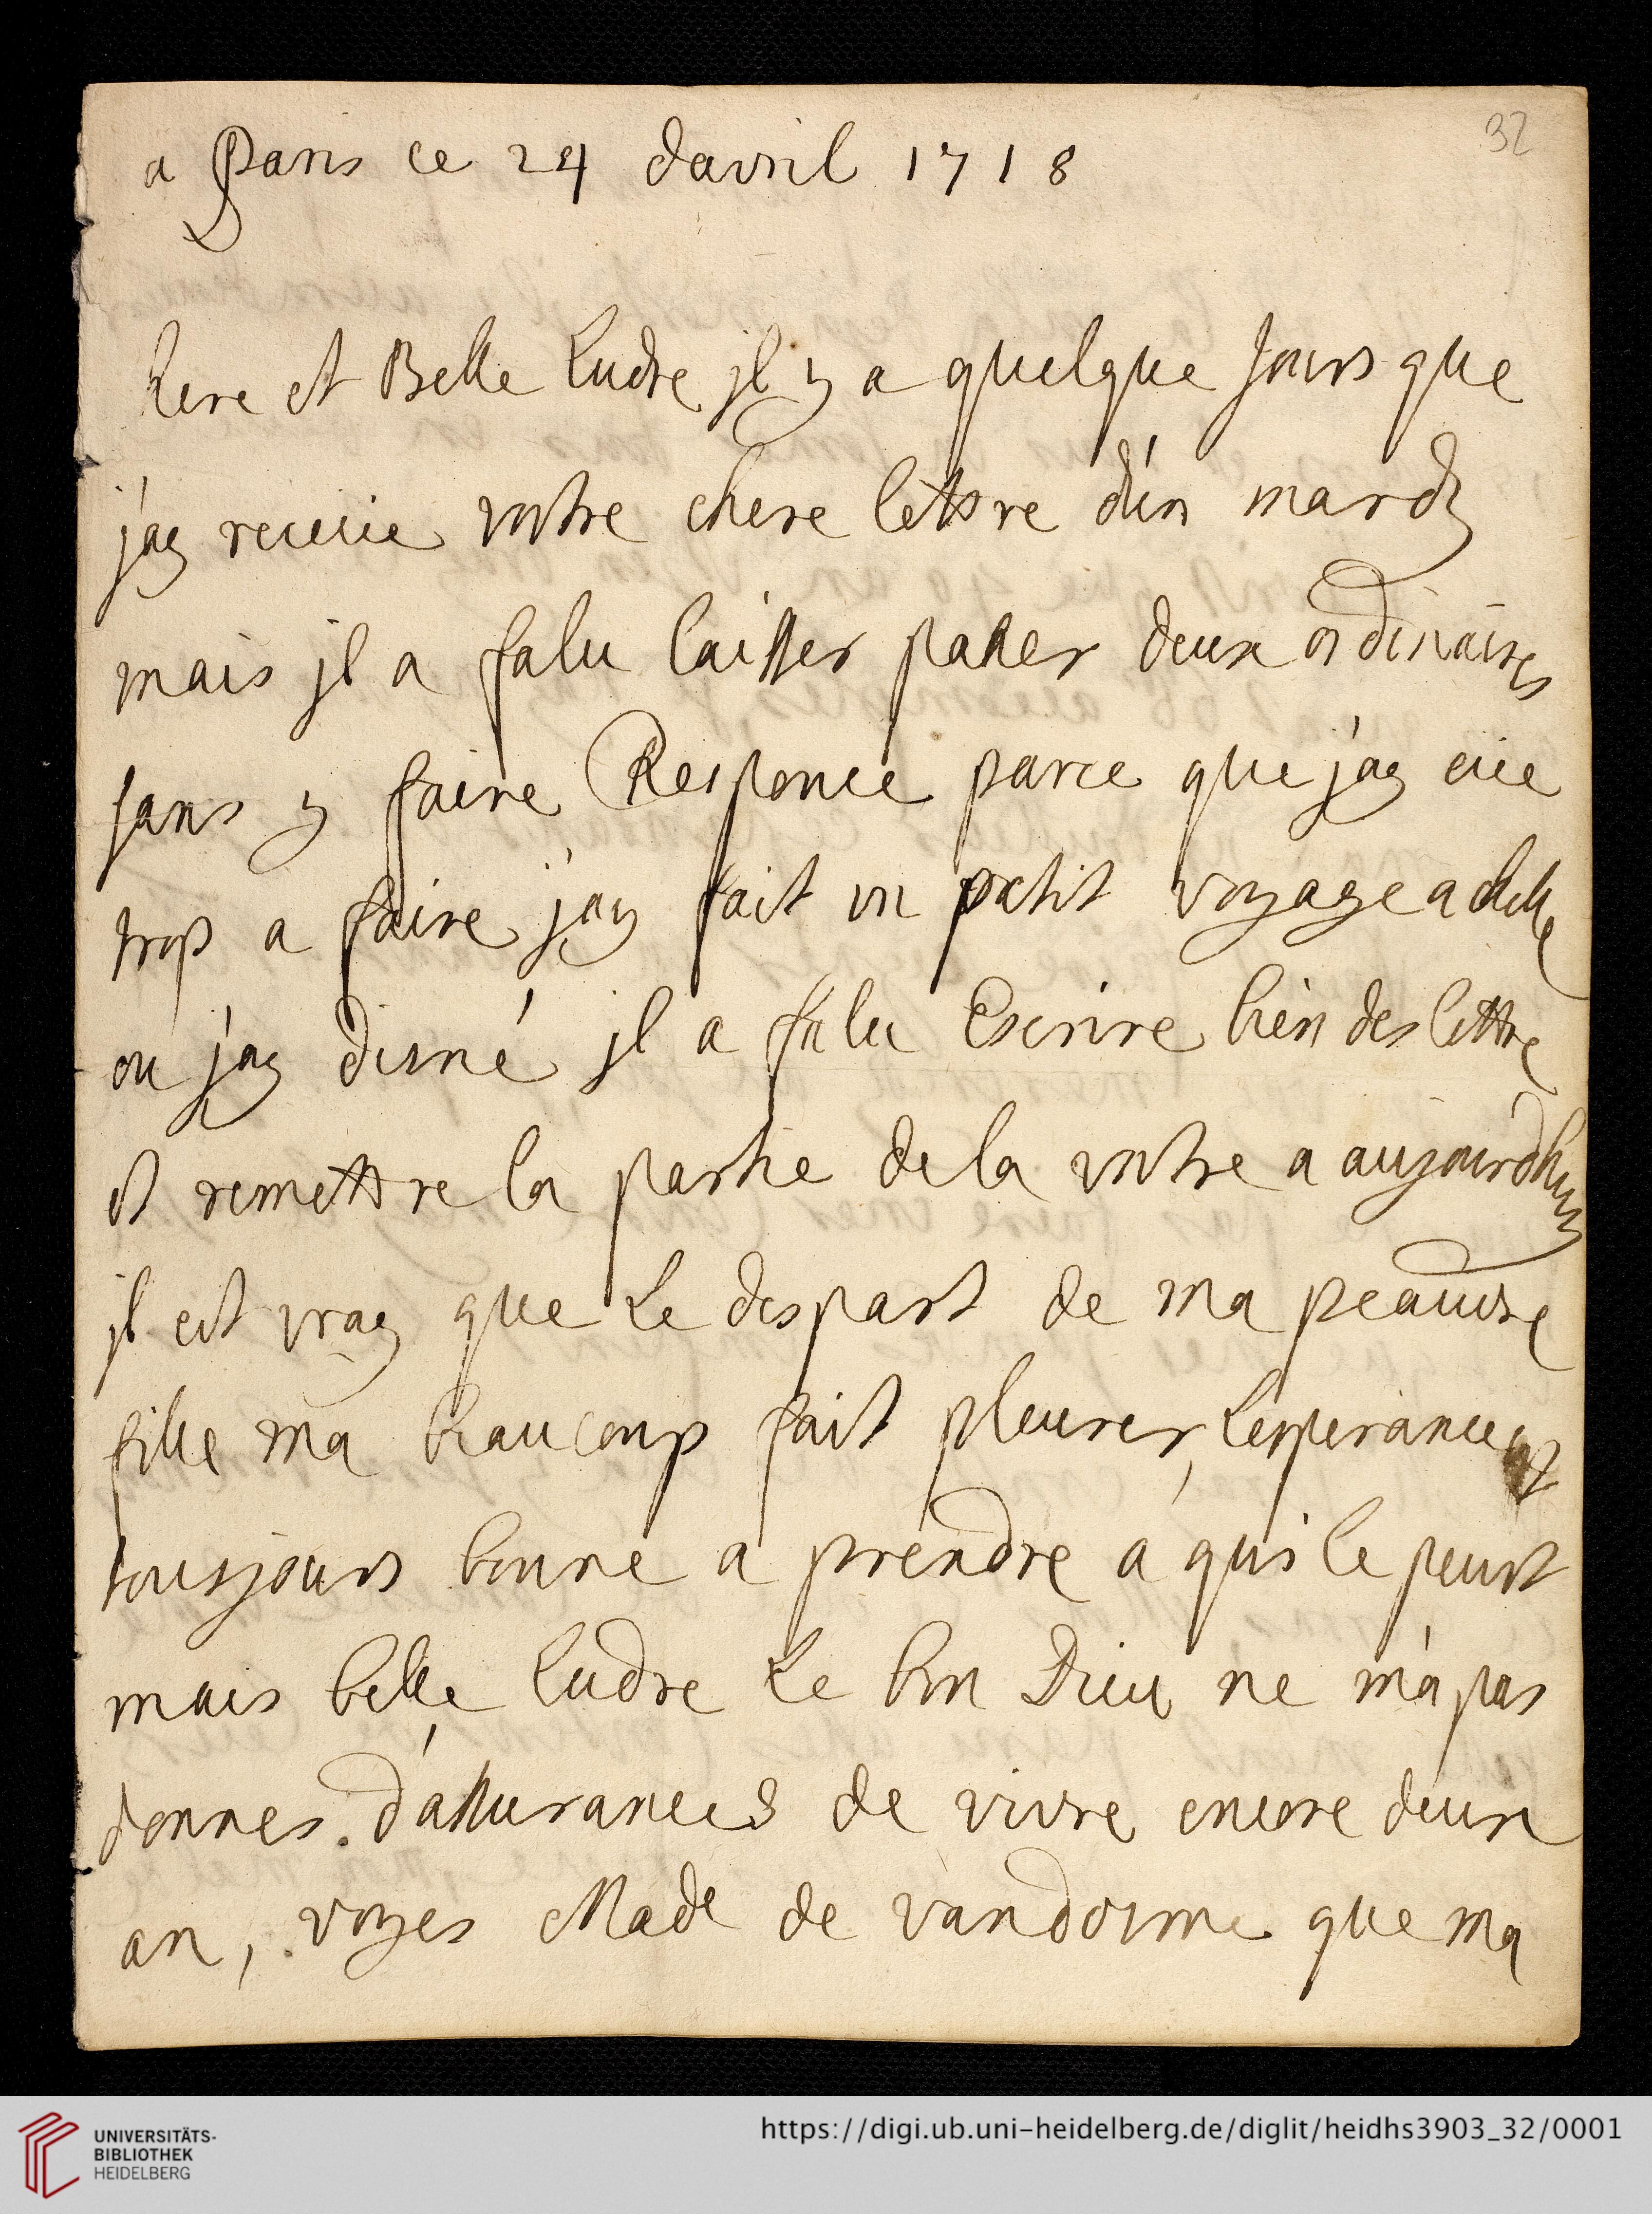 32
a Paris ce 24 davril 1718
chere et Belle Ludre jl y a quelque jours que
j'ay receüe vostre chere lettre d'un mardy
mais jl a falu laisser passer deux ordinaires
sans y faire Responce parce que j'ay eüe
trop a faire j'ay fait un petit voyage a chelle
ou j'ay disné jl a falu Escrire bien des lettre
et remettre la partie de la vostre a aujourdhuy
jl est vray que Le despart de ma peauvre
fille ma beaucoup fait pleurer, Lesperance est
tousjours bonne a prendre a qui le peust
mais belle Ludre Le bon Dieu ne m'a pas
donnes d'assurances de vivre encore deux
an, voyes Made de vandosme que ma
UNIVERSITÄTS-
BIBLIOTHEK
HEIDELBERG
https://digi.ub.uni-heidelberg.de/diglit/heidhs3903_32/0001